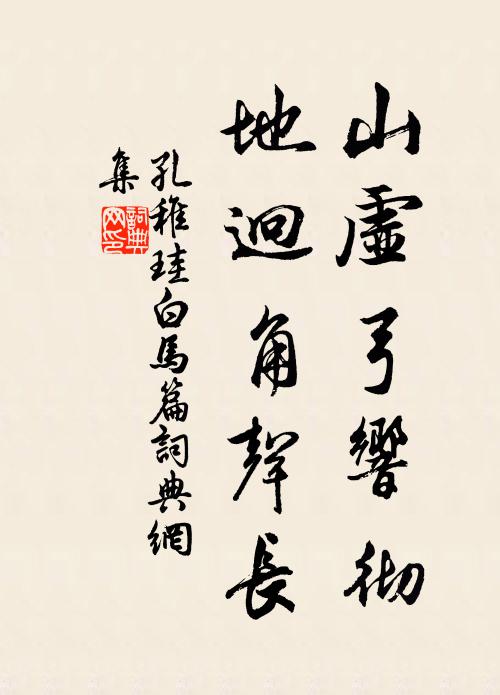 山虛弓響徹
地迥角聲長
孔稚珪白馬篇詞典網
集
詞典網印